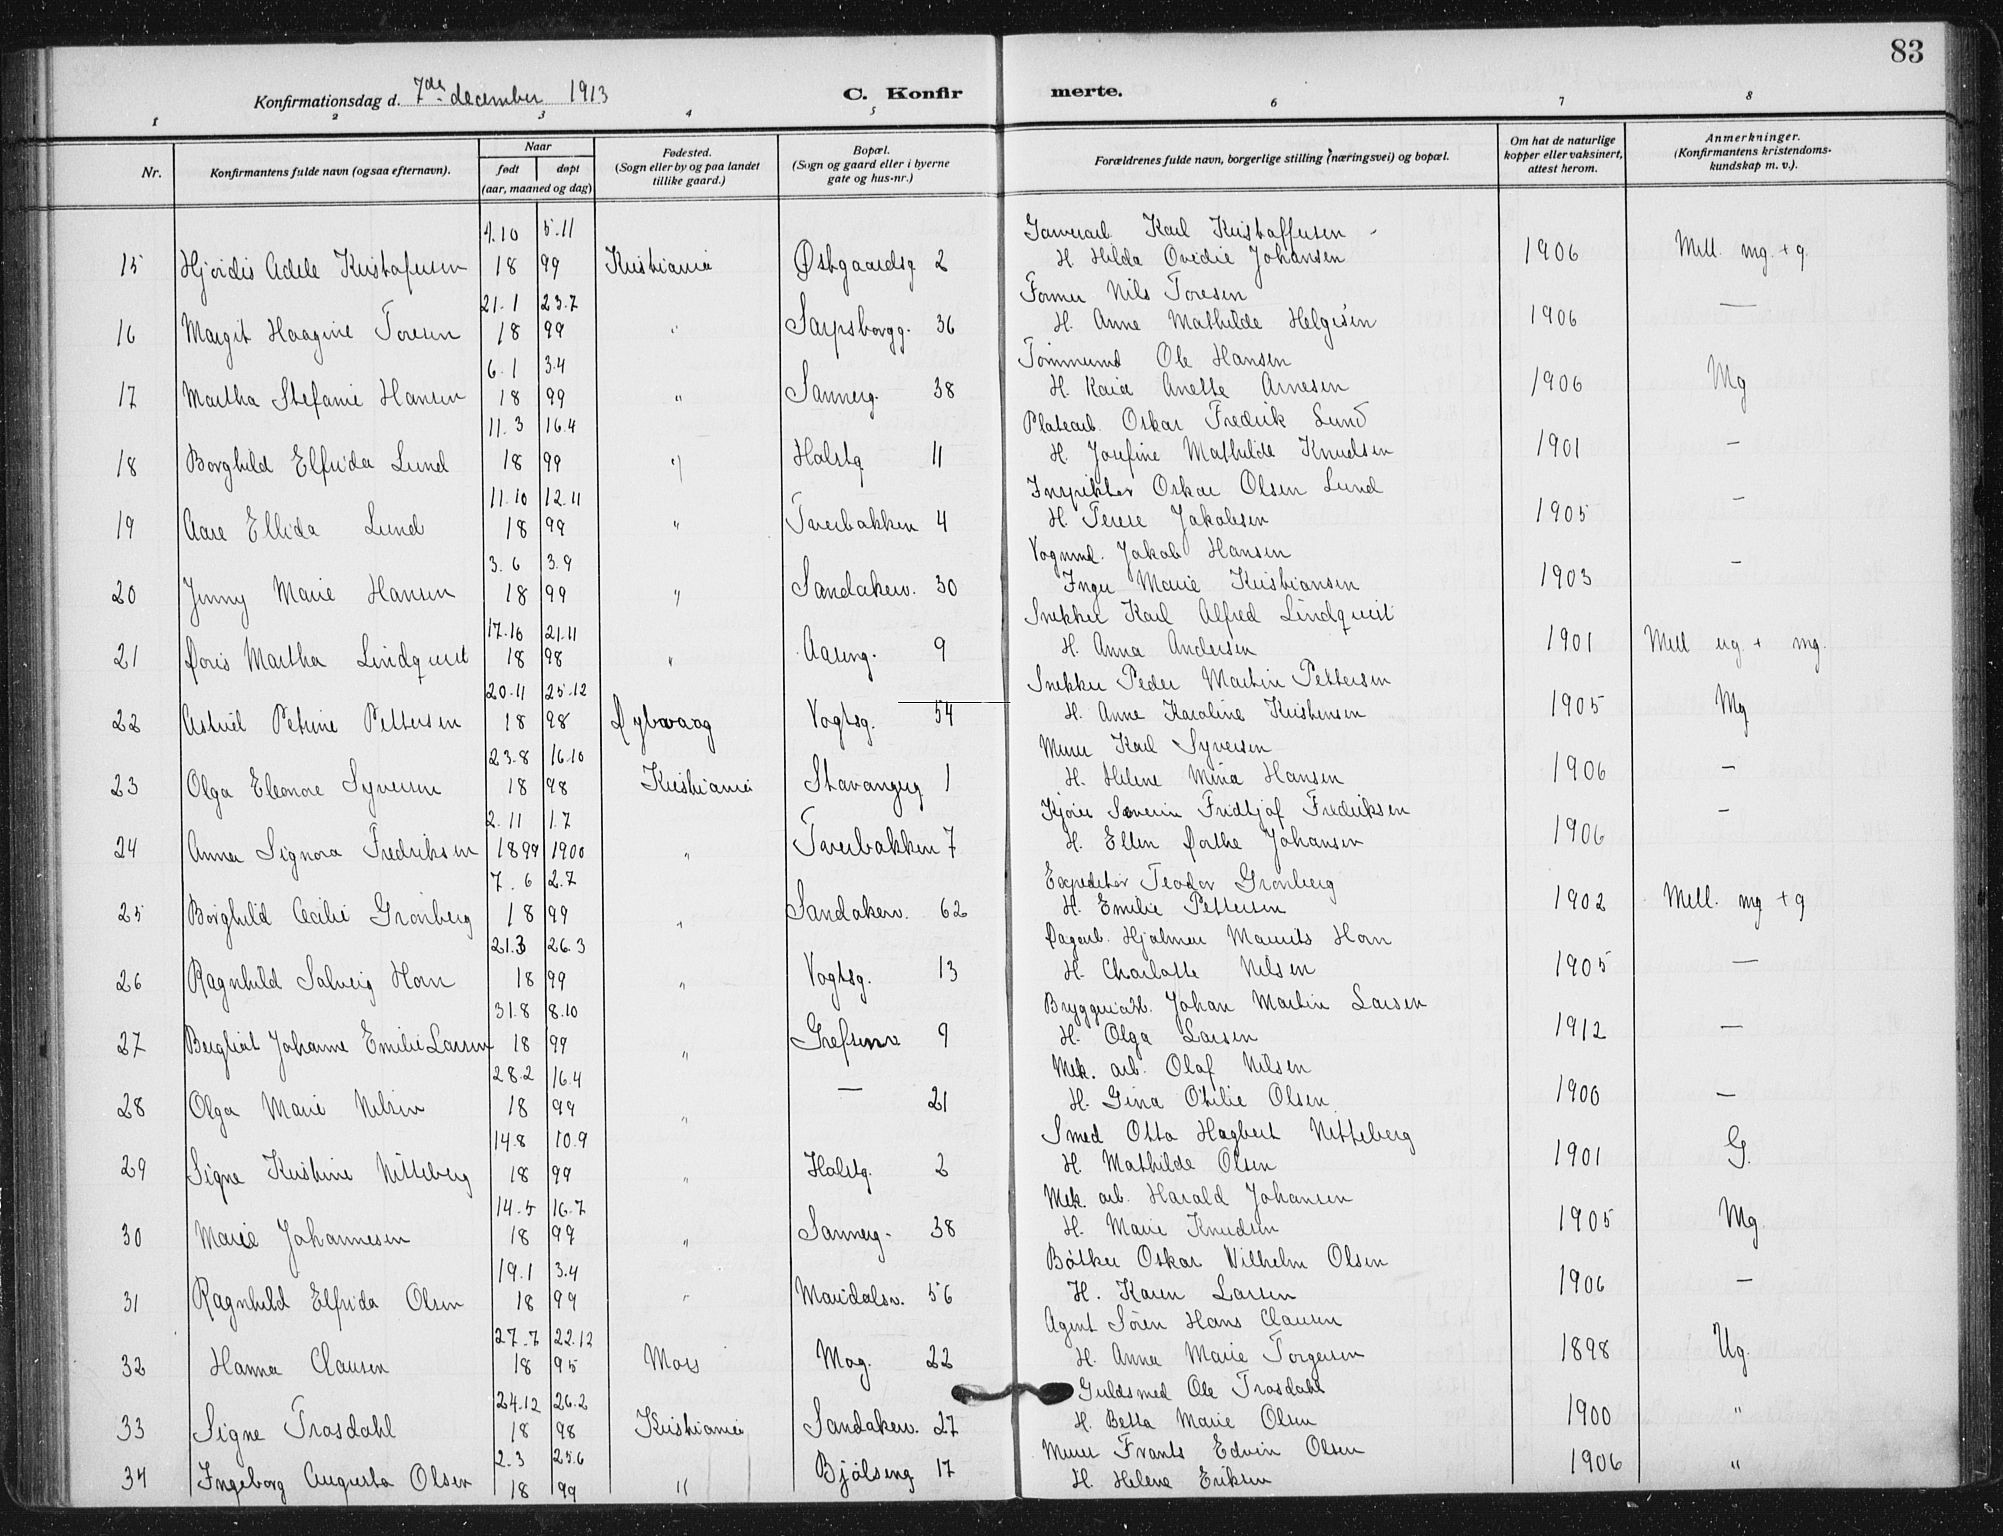 83
Konfirmationsdag d. 7de december 1913 C. Konfirmerte.
1 2 3 4 5 6 7 8
Nr. Konfirmantens fulde navn (ogsaa efternavn). Naar født døpt (aar, maaned og dag) Fødested. (Sogn eller by og paa landet tillike gaard.) Bopæl. (Sogn og gaard eller i byerne gate og hus-nr.) Forældrenes fulde navn, borgerlige stilling (næringsvei) og bopæl. Om hat de naturlige kopper eller vaksinert, attest herom. Anmerkninger. (Konfirmantens kristendoms-kundskap m. v.).
4.10 5.11 Garverarb. Karl Kristoffersen
15 Hjørdis Adele Kristofersen 18 99 Kristiania Østgaardsg 2 H. Hilda Ovidie Johansen 1906 Mell. mg. + g.
21.1 23.7 Former Nils Toresen
16 Margit Haagine Toresen 18 99 " Sarpsborgg. 36 H. Anne Mathilde Helgesen 1906 —
6.1 3.4 Tømmermd Ole Hansen
17 Martha Stefanie Hansen 18 99 " Sannerg. 38 H. Kaia Anette Arnesen 1906 Mg
11.3 16.4 Platearb. Oskar Fredrik Lund
18 Borghild Elfrida Lund 18 99 " Halstg 11 H. Josefine Mathilde Knudsen 1901 —
11.10 12.11 Inspektør Oskar Olsen Lund
19 Aase Ellida Lund 18 99 " Tverbakken 4 H. Terese Jakobsen 1905 —
3.6 3.9 Vognmd. Jakob Hansen
20 Jenny Marie Hansen 18 99 " Sandakerv. 30 Inger Marie Kristiansen 1903 —
17.10 21.11 Snekker Karl Alfred Lindquist
21 Doris Martha Lindquist 18 98 " Aaseng. 9 H. Anna Andersen 1901 Mell ug + mg.
20.11 25.12 Snekker Peder Martin Pettersen
22 Astrid Petrine Pettersen 18 98 Dybvaag Vogtsg. 54 H. Anne Karoline Kristensen 1905 Mg
23.8 16.10 Murer Karl Syversen
23 Olga Eleonore Syversen 18 98 Kristiania Stavangerg 1 H. Helene Mina Hansen 1906 —
2.11 1.7 Kjører Severin Fridtjof Fredriksen —
24 Anna Signora Fredriksen 1899 1900 " Tverbakken 7 H. Ellen Dorthe Johansen 1906
7.6 2.7 Expeditør Teodor Grønberg
25 Borghild Cecilie Grønberg 18 99 " Sandakerv. 62 H. Emilie Pettersen 1902 Mell. mg + g
21.3 26.3 Dagarb. Hjalmar Maurits Horn
26 Ragnhild Solveig Horn 18 99 " Vogtsg. 13 H. Charlotte Nilsen 1905 —
31.8 8.10 Bryggeriarb. Johan Martin Larsen
27 Bergliot Johanne Emilie Larsen 18 99 " Grefsenv 9 H. Olga Larsen 1912 —
28.2 16.4 Mek. arb. Olaf Nilsen
28 Olga Marie Nilsen 18 99 " — 21 H. Gina Otilie Olsen 1900 —
14.8 10.9 Smed Otto Hagbert Nitteberg
29 Signe Kristine Nitteberg 18 99 " Halstg. 2 H. Mathilde Olsen 1901 G.
14.5 16.7 Mek. arb. Harald Johansen
30 Marie Johannesen 18 99 " Sannerg. 38 H. Marie Knudsen 1905 Mg.
19.1 3.4 Bøtker Oskar Vilhelm Olsen
31 Ragnhild Elfrida Olsen 18 99 " Maridalsv. 56 H. Karen Larsen 1906 —
27.7 22.12 Agent Søren Hans Clausen
32 Hanna Clausen 18 95 Mors Mog. 22 H. Anna Marie Torgersen 1898 Ug.
24.12 26.2 Guldsmed Ole Trosdahl
33 Signe Trosdahl 18 98 Kristiania Sandakerv. 27 H. Betta Marie Olsen 1900 "
2.3 25.6 Murer Frants Edvin Olsen
34 Ingeborg Augusta Olsen 18 99 " Bjølseng 17 H. Helene Eriksen 1906 "